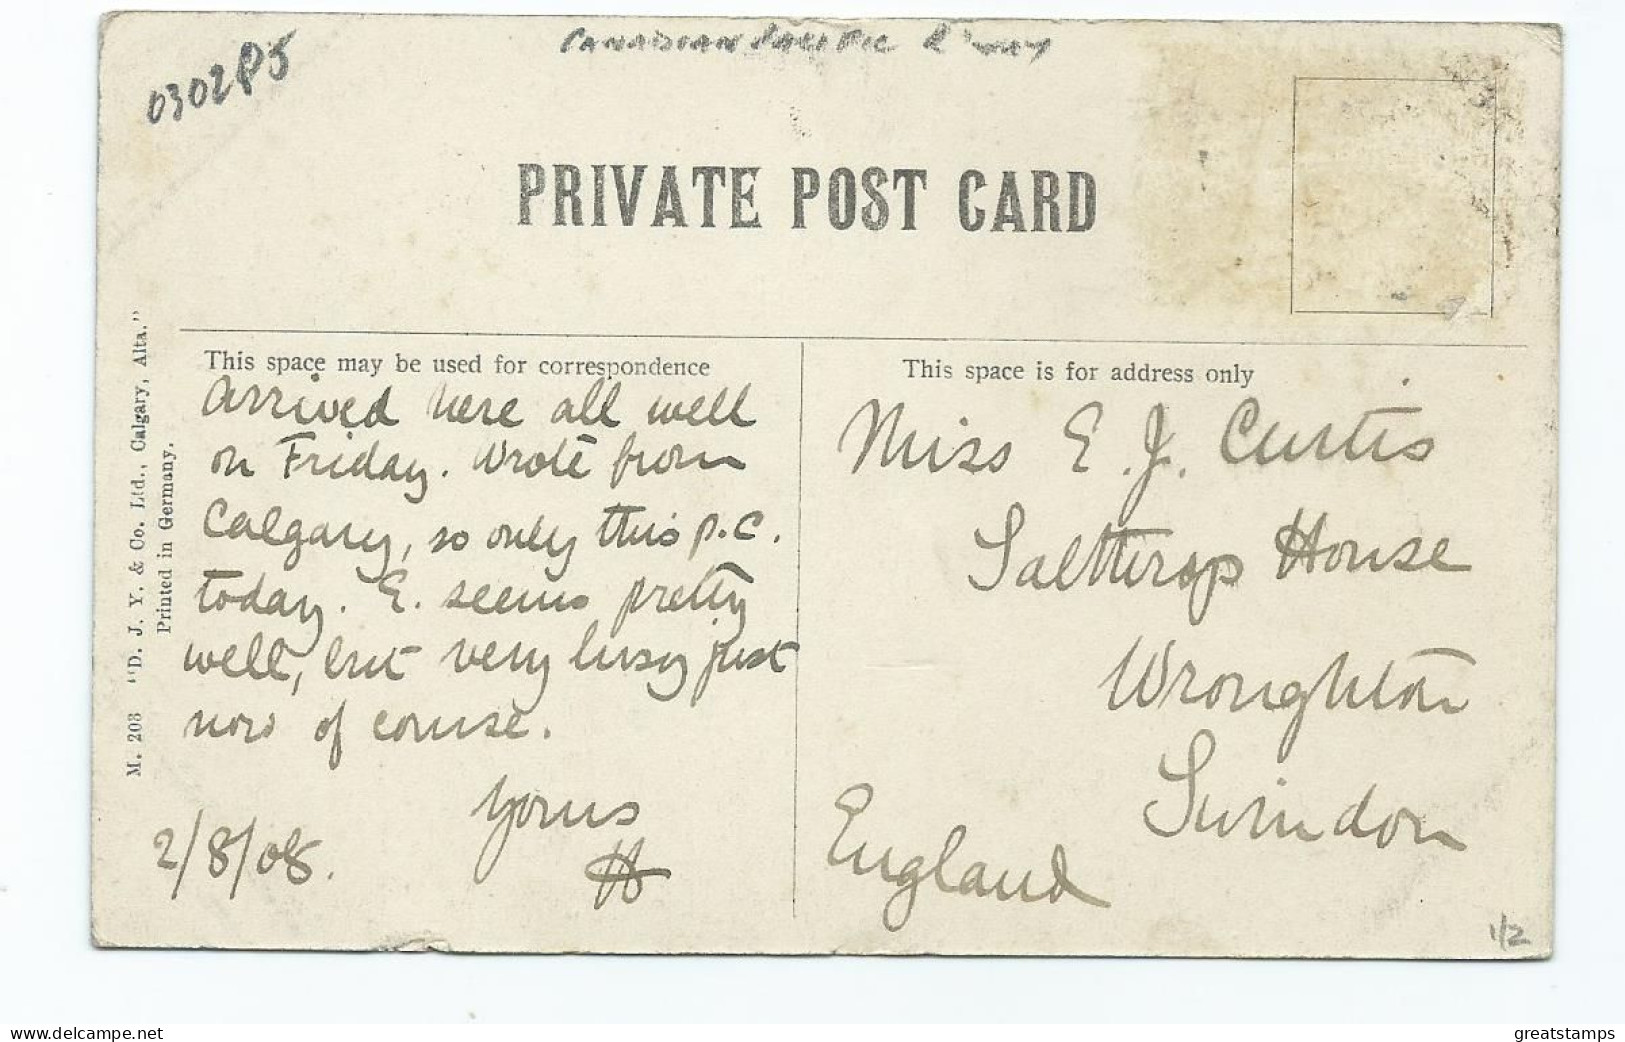 0302P5
CANADIAN PACIFIC R'WAY
PRIVATE POST CARD
M. 203 "D. J. Y. & Co. Ltd., Calgary, Alta."
Printed in Germany.
This space may be used for correspondence
Arrived here all well
on Friday. Wrote from
Calgary, so only this p.c.
today. E. seems pretty
well, but very busy just
now of course.
Yours
H
2/8/08.
This space is for address only
Miss E. J. Curtis
Salthrop House
Wroughton
Swindon
England
1/2
www.delcampe.net
greatstamps